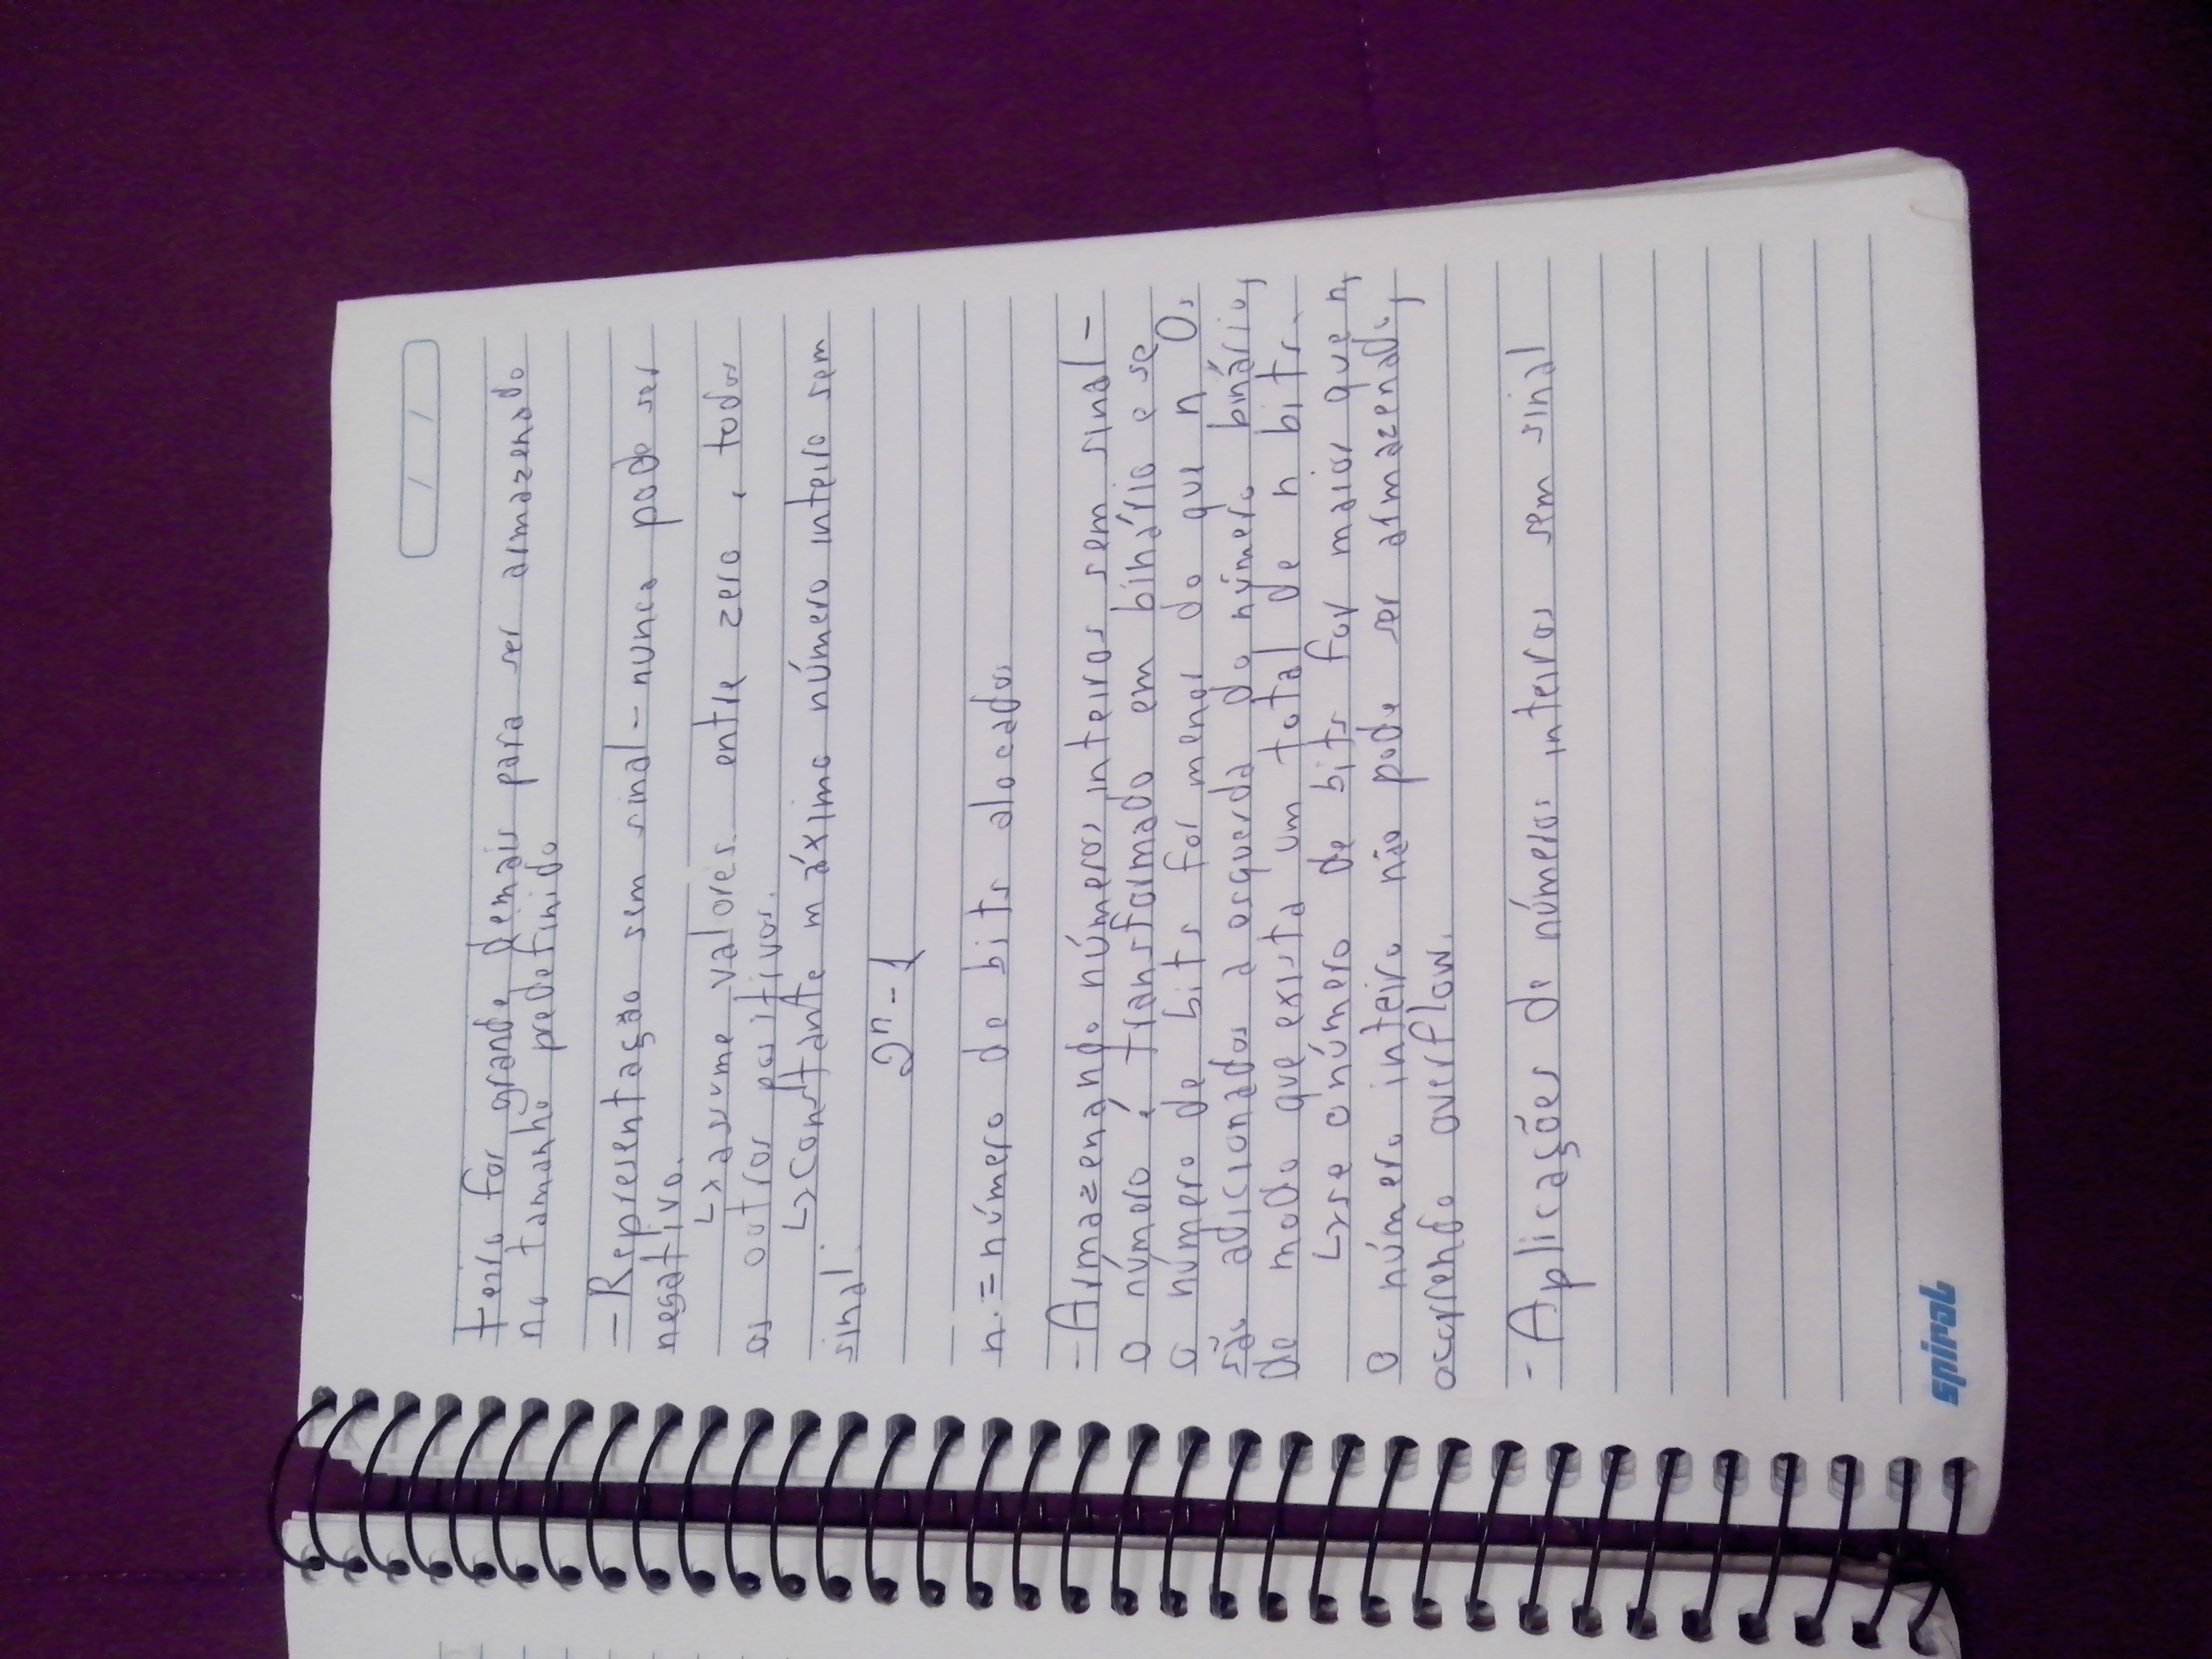 teiro for grande demais para ser armazenado
no tamanho predefinido
- Representação sem sinal - nunca pode ser
negativo.
↳ assume valores entre zero e todos
os outros positivos.
↳ Constante máximo número inteiro sem
sinal.
2ⁿ - 1
n. = número de bits alocados
- Armazenando números inteiros sem sinal -
o número é transformado em binário e se
o número de bits for menor do que n 0s
são adicionados a esquerda do número binário,
de modo que exista um total de n bits.
↳ se o número de bits for maior que n,
o número inteiro não pode ser armazenado,
ocorrendo overflow.
- Aplicações de números inteiros sem sinal
spiral